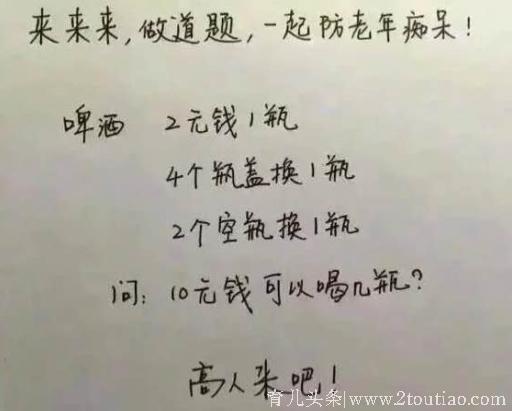 来来来,做道题,一起防老年痴呆!
啤酒 2元钱1瓶
4个瓶盖换1瓶
2个空瓶换1瓶
问:10元钱可以喝几瓶?
高人来吧!
育儿头条|www.2toutiao.com